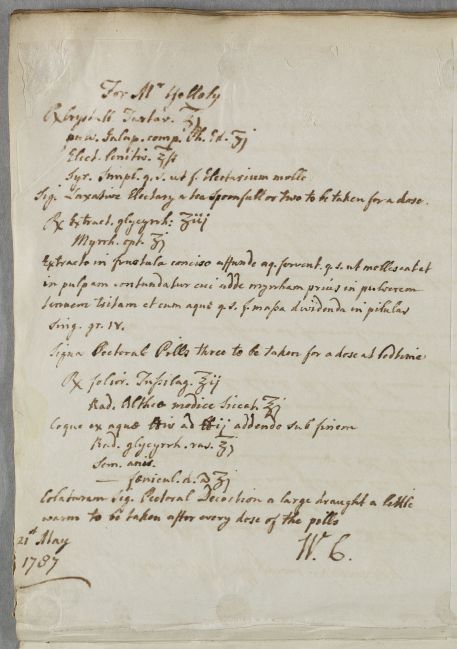 For Mr Yelloly
℞ Crystall Tartar. ℥j
pulv. Jalap. comp. Ph. Ed. ʒj
Elect. lenitiv. ℥ſs
Syr. Simpl. q. s. ut f. Electarium molle
Sig. Laxative Electary a tea spoonfull or two to be taken for a dose.
℞ Extract. glycyrrh: ʒiij
Myrrh. opt. ʒj
Extracto in frustula conciso affunde aq. fervent. q. s. ut mollescat et
in pulpam contundatur cui adde myrrham prius in pulverem
tenuem tritam et cum aquæ q. s. f. massa dividenda in pilulas
sing. gr. iv.
Signa Pectoral Pills three to be taken for a dose at bedtime
℞ folior. Tussilag. ℥ij
Rad. Altheæ modice siccat. ℥j
Coque ex aquæ ad addendo sub finem
Rad. glycyrrh. ras. ℥j
Sem. anis.
— fœnicul. d. a ʒj
Colaturam sig. Pectoral Decoction a large draught a little
warm to be taken after every dose of the pills
21st May
1787
W. C.